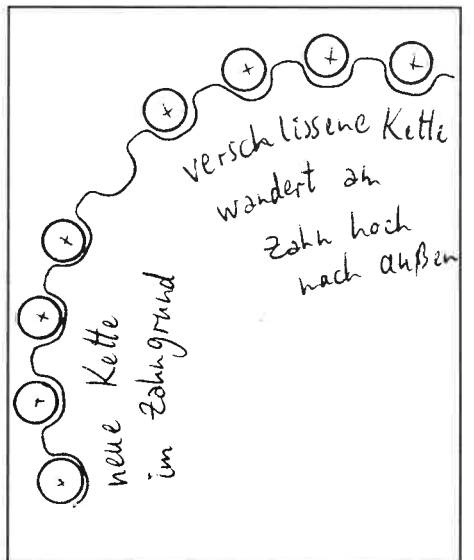 verschlissene Kette
wandert am
Zahn hoch
nach außen
neue Kette
im Zahngrund